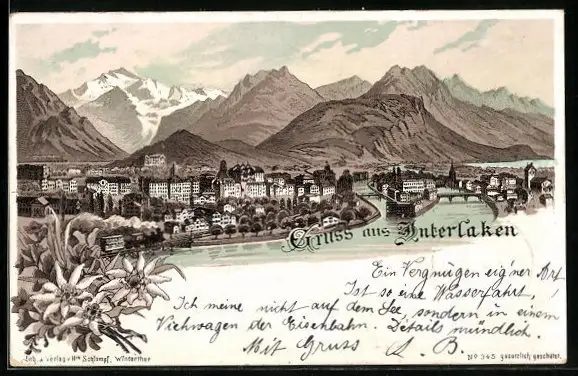 Gruss aus Interlaken
Ein Vergnügen eig'ner Art
Ist so eine Wasserfahrt,
Ich meine nicht auf dem See, sondern in einem
Viehwagen der Eisenbahn. Détails mündlich.
Mit Gruss A. B.
Lith. u. Verlag v. Hch. Schlumpf, Winterthur
No 345 gesetzlich geschützt.